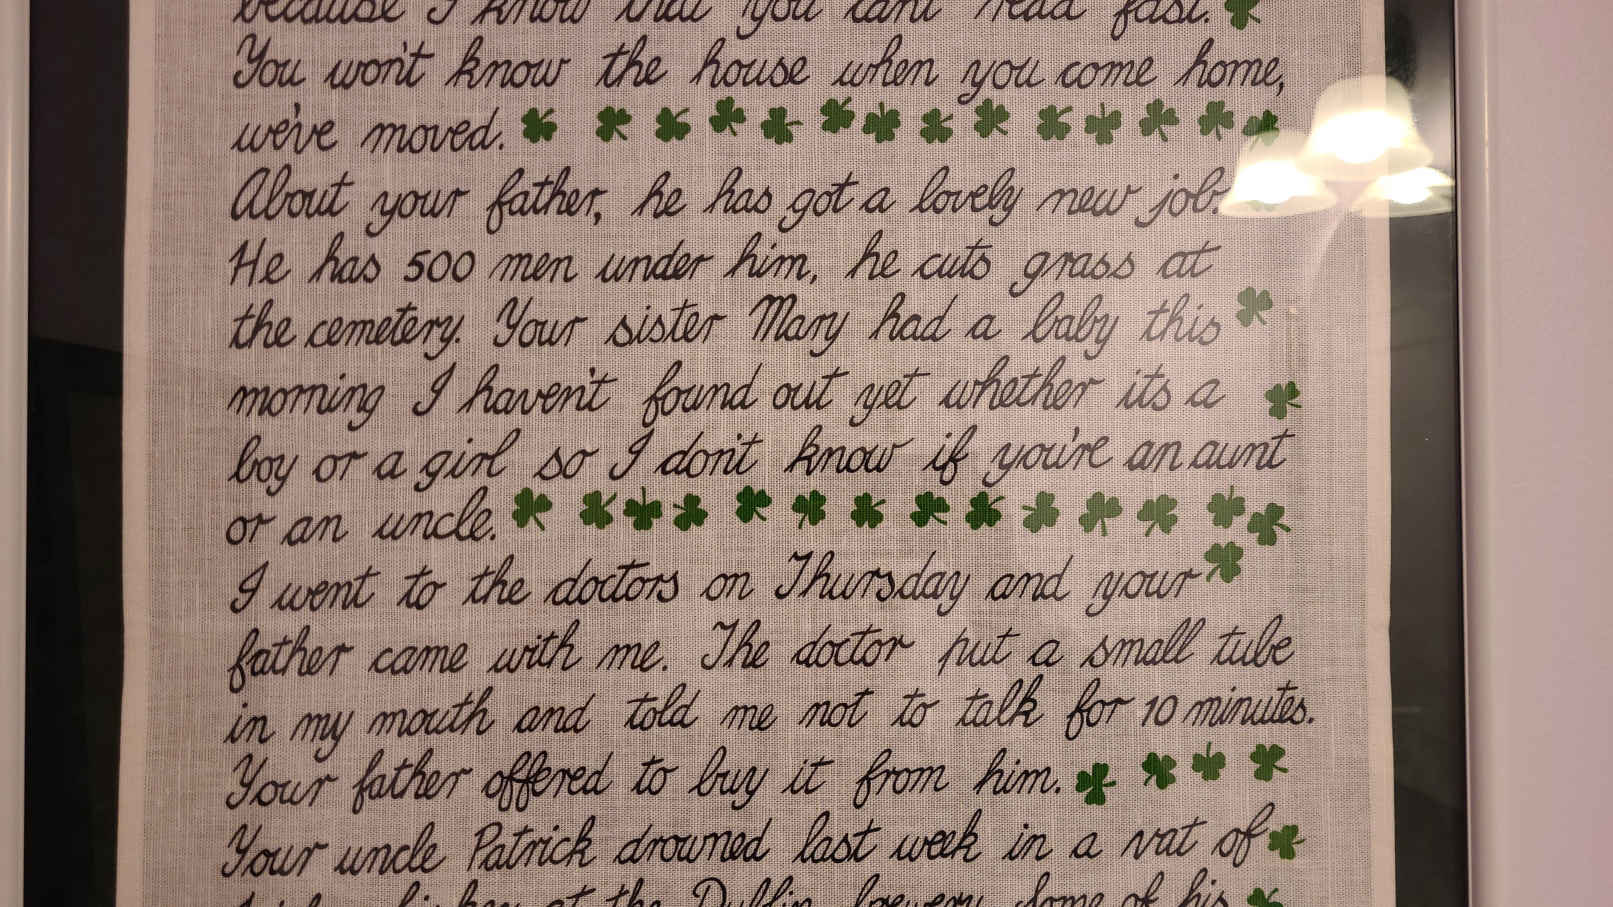 because I know that you cant read fast.
You won't know the house when you come home,
we've moved.
About your father, he has got a lovely new job.
He has 500 men under him, he cuts grass at
the cemetery. Your sister Mary had a baby this
morning I haven't found out yet whether its a
boy or a girl so I don't know if you're an aunt
or an uncle.
I went to the doctors on Thursday and your
father came with me. The doctor put a small tube
in my mouth and told me not to talk for 10 minutes.
Your father offered to buy it from him.
Your uncle Patrick drowned last week in a vat of
at the Dublin brewery. Some of his